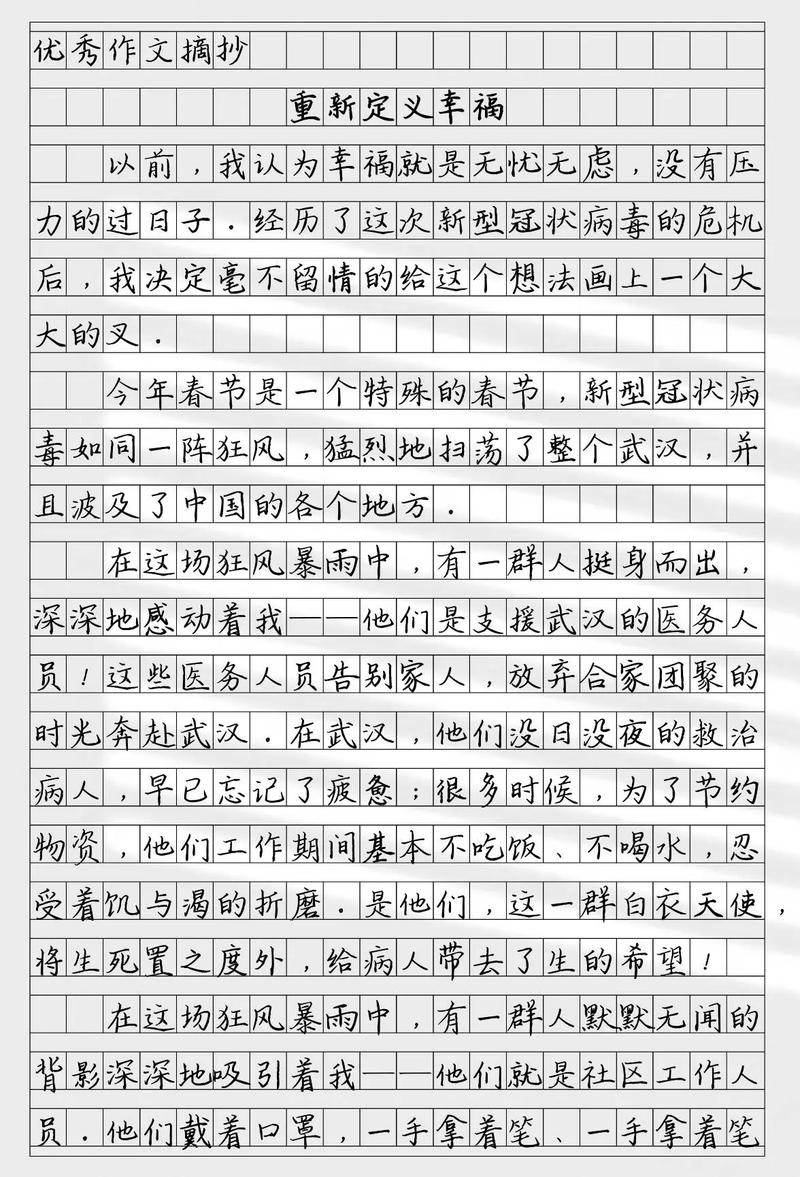 优秀作文摘抄
重新定义幸福
以前，我认为幸福就是无忧无虑，没有压
力的过日子．经历了这次新型冠状病毒的危机
后，我决定毫不留情的给这个想法画上一个大
大的叉．
今年春节是一个特殊的春节，新型冠状病
毒如同一阵狂风，猛烈地扫荡了整个武汉，并
且波及了中国的各个地方．
在这场狂风暴雨中，有一群人挺身而出，
深深地感动着我——他们是支援武汉的医务人
员！这些医务人员告别家人，放弃合家团聚的
时光奔赴武汉．在武汉，他们没日没夜的救治
病人，早已忘记了疲惫；很多时候，为了节约
物资，他们工作期间基本不吃饭、不喝水，忍
受着饥与渴的折磨．是他们，这一群白衣天使，
将生死置之度外，给病人带去了生的希望！
在这场狂风暴雨中，有一群人默默无闻的
背影深深地吸引着我——他们就是社区工作人
员．他们戴着口罩，一手拿着笔、一手拿着笔